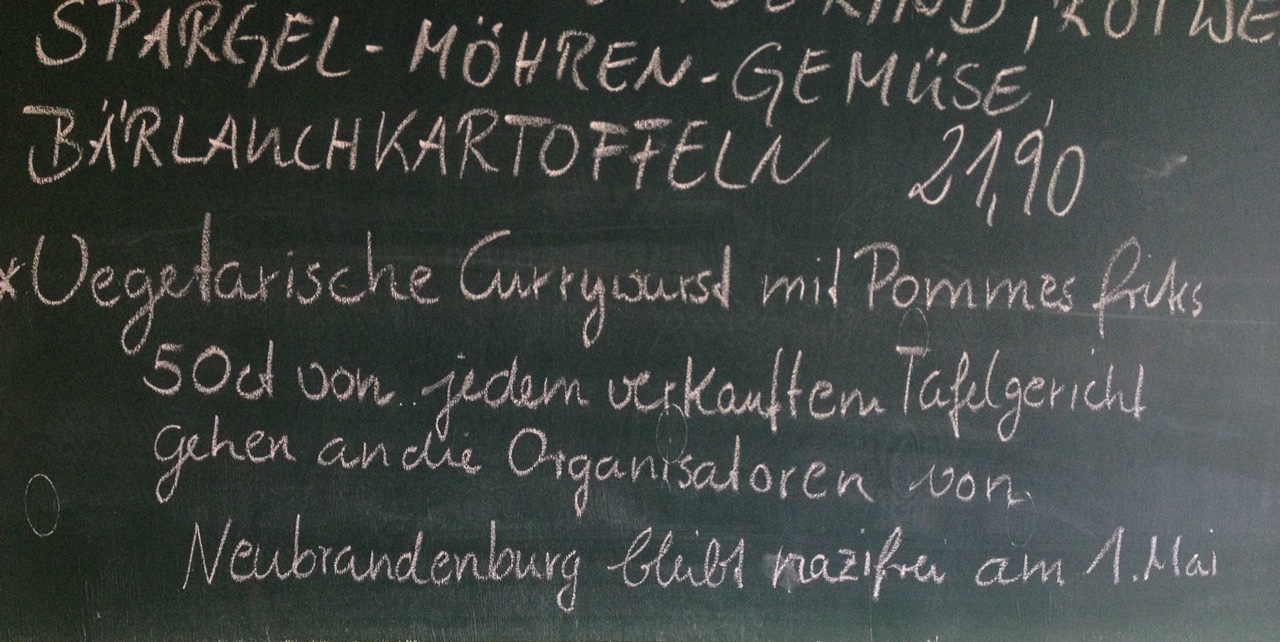 RIND, ROTWE
SPARGEL-MÖHREN-GEMÜSE,
BÄRLAUCHKARTOFFELN 21,90
*Vegetarische Currywurst mit Pommes frites
50ct von jedem verkauftem Tafelgericht
gehen an die Organisatoren von
Neubrandenburg bleibt nazifrei am 1. Mai